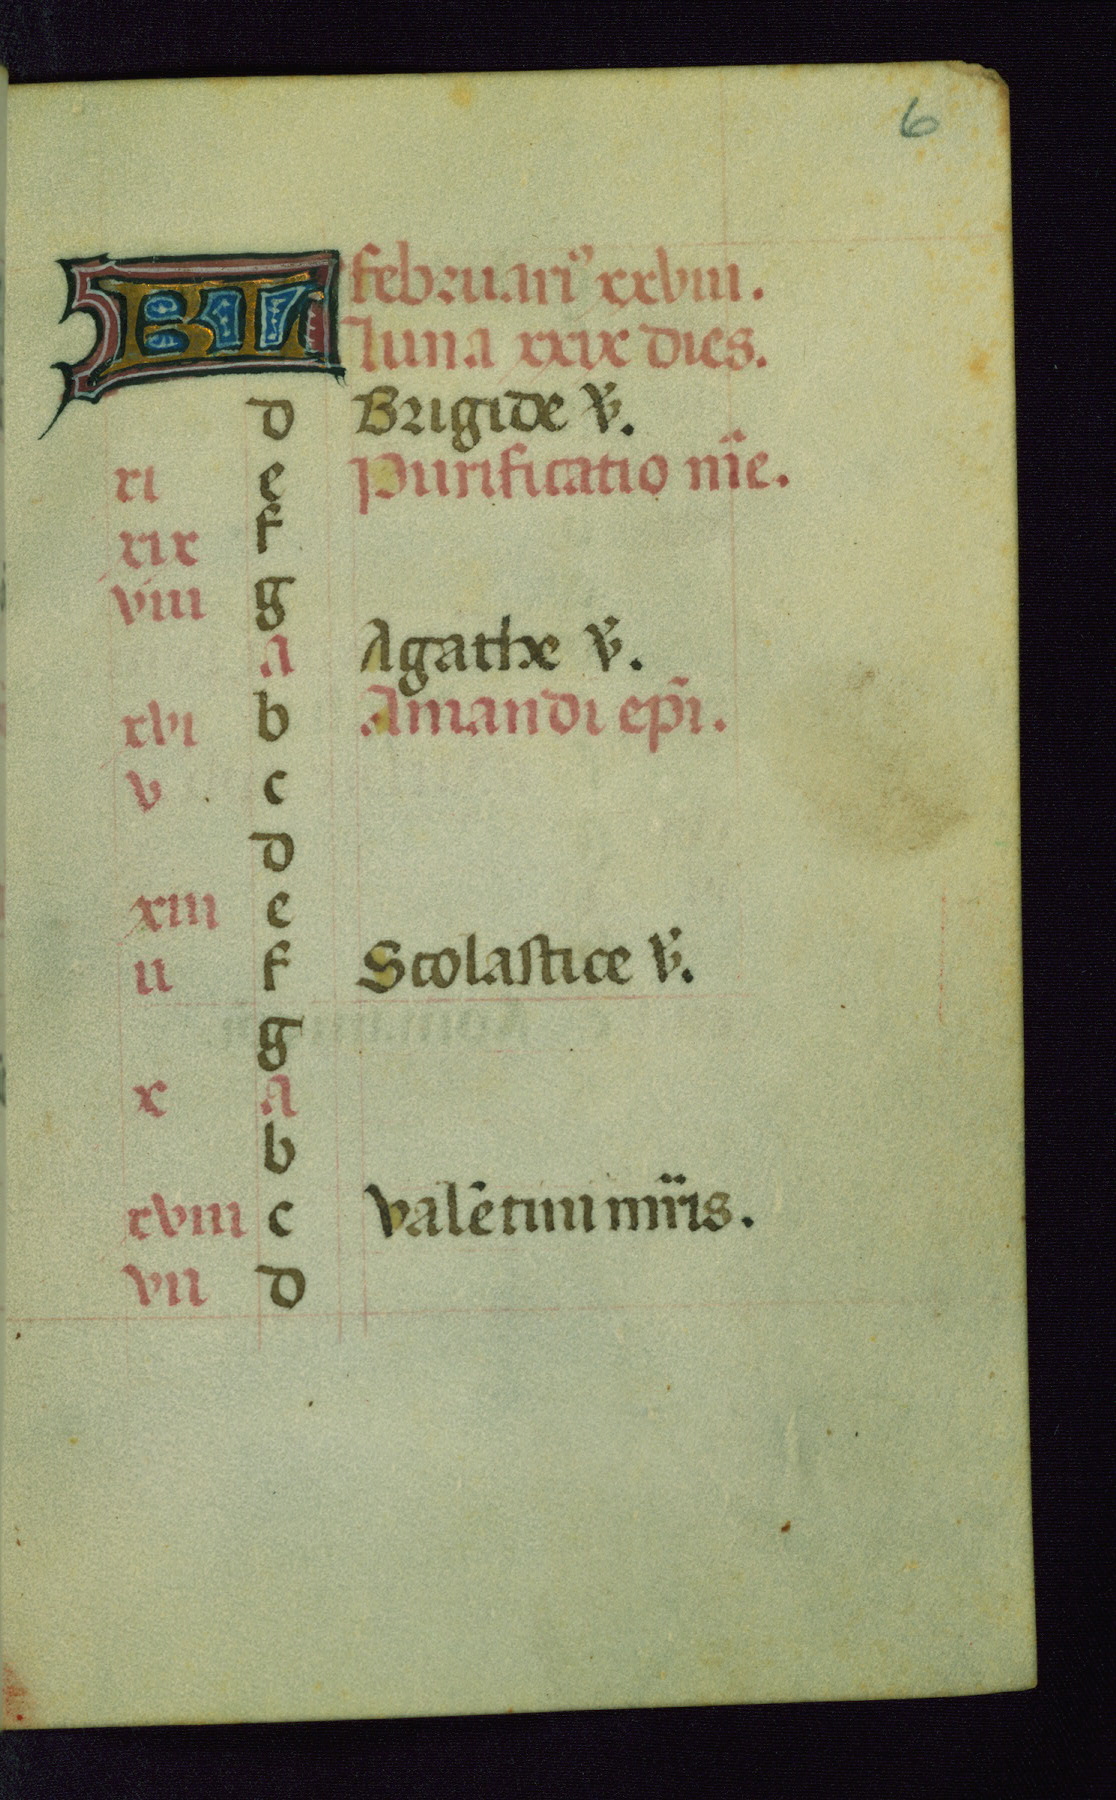 6
KL februari⁹ xxviii.
luna xxix dies.
d Brigide v̄.
xi e Purificatio m̄ie.
xix f
viii g
a Agathe v̄.
xvi b Amandi ep̄i.
v c
d
xiii e
ii f Scolastice v̄.
g
x a
b
xviii c valētini mr̄is.
vii d